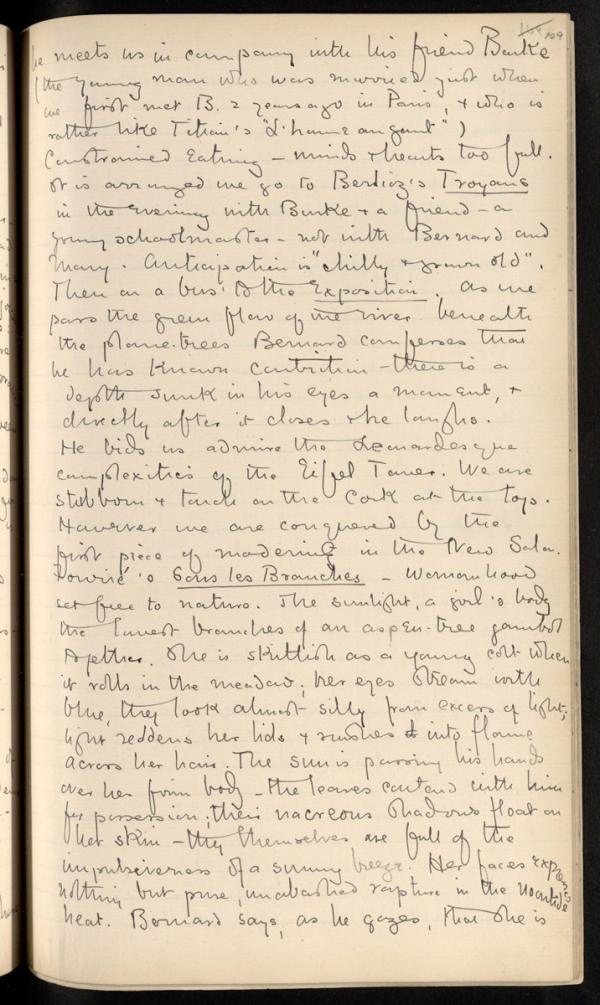 109 109
he meets us in company with his friend Burke
(the young man who was married just when
we first met B. 2 years ago in Paris, & who is
rather like Titian's "L'homme au gant")
Constrained Eating – minds & hearts too full.
It is arranged we go to Berlioz's Troyans
in the evening with Burke & a friend – a
young schoolmaster – not with Bernard and
Mary. Anticipation is "chilly & grown old".
Then on a bus to the Exposition. As we
pass the green flow of the river beneath
the plane-trees Bernard confesses that
he has known contrition – there is a
depth sunk in his eyes a moment, &
directly after it closes & he laughs.
He bids us admire the Leonardesque
complexities of the Eiffel Tower. We are
stubborn & touch on the Cork at the top.
However we are conquered by the
first piece of modernité in the New Salon.
's Sous les Branches – Womanhood
set free to nature. The sunlight, a girl's body
the lowest branches of an aspen-tree gambol
together. She is skittish as a young colt when
it rolls in the meadow; her eyes stream with
blue, they look almost silly from excess of light;
light reddens her lids & rushes into flame
across her hair. The sun is passing his hands
over her firm body – the leaves contend with him
for possession; their nacreous shadows float on
her skin – they themselves are full of the
impulsiveness of a sunny breeze. Her face expresses
nothing but pure, unabashed rapture in the noontide
heat. Bernard says, as he gazes, that she is